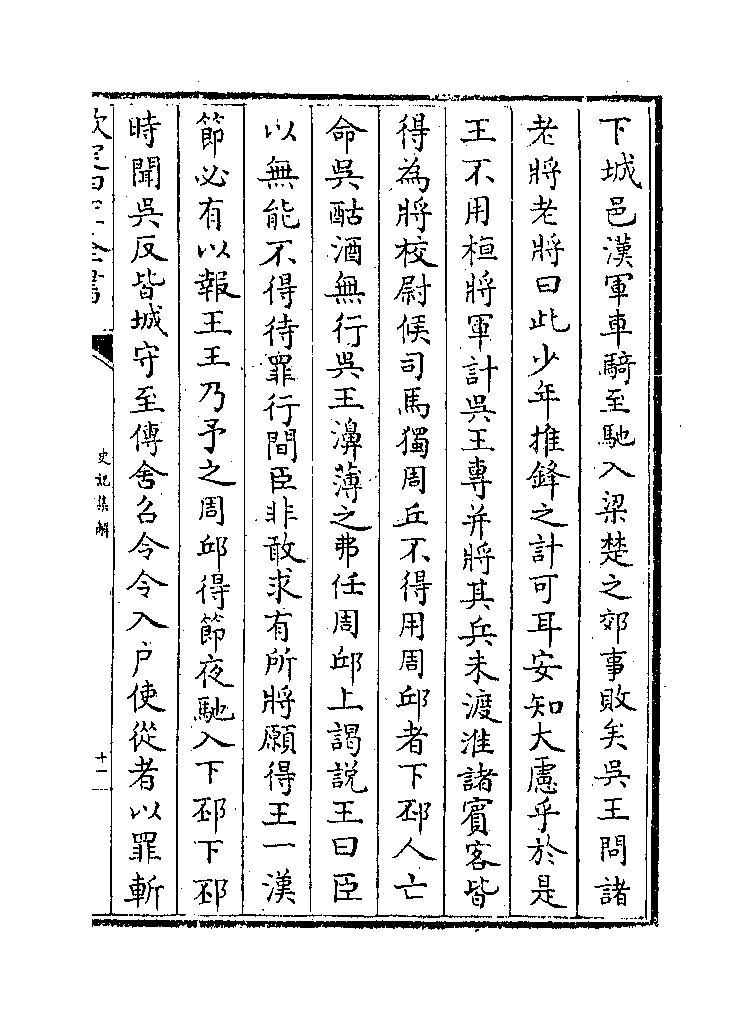 下城邑漢軍車騎至馳入梁楚之郊事敗矣吳王問諸
老將老將曰此少年推鋒之計可耳安知大慮乎於是
王不用桓將軍計吳王專并將其兵未渡淮諸賓客皆
得為將校尉候司馬獨周丘不得用周邱者下邳人亡
命吳酤酒無行吳王濞薄之弗任周邱上謁説王曰臣
以無能不得待罪行間臣非敢求有所將願得王一漢
節必有以報王王乃予之周邱得節夜馳入下邳下邳
時聞吳反皆城守至傳舍召令令入户使從者以罪斬
欽定四庫全書
史記集解
十一